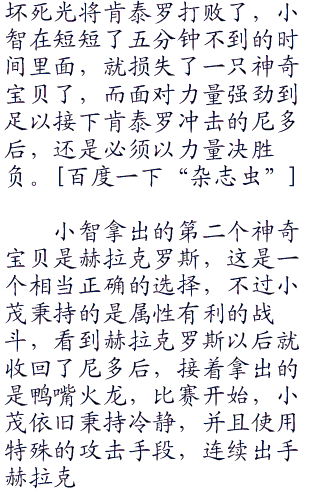 坏死光将肯泰罗打败了，小
智在短短了五分钟不到的时
间里面，就损失了一只神奇
宝贝了，而面对力量强劲到
足以接下肯泰罗冲击的尼多
后，还是必须以力量决胜
负。[百度一下“杂志虫”]
小智拿出的第二个神奇
宝贝是赫拉克罗斯，这是一
个相当正确的选择，不过小
茂秉持的是属性有利的战
斗，看到赫拉克罗斯以后就
收回了尼多后，接着拿出的
是鸭嘴火龙，比赛开始，小
茂依旧秉持冷静，并且使用
特殊的攻击手段，连续出手
赫拉克